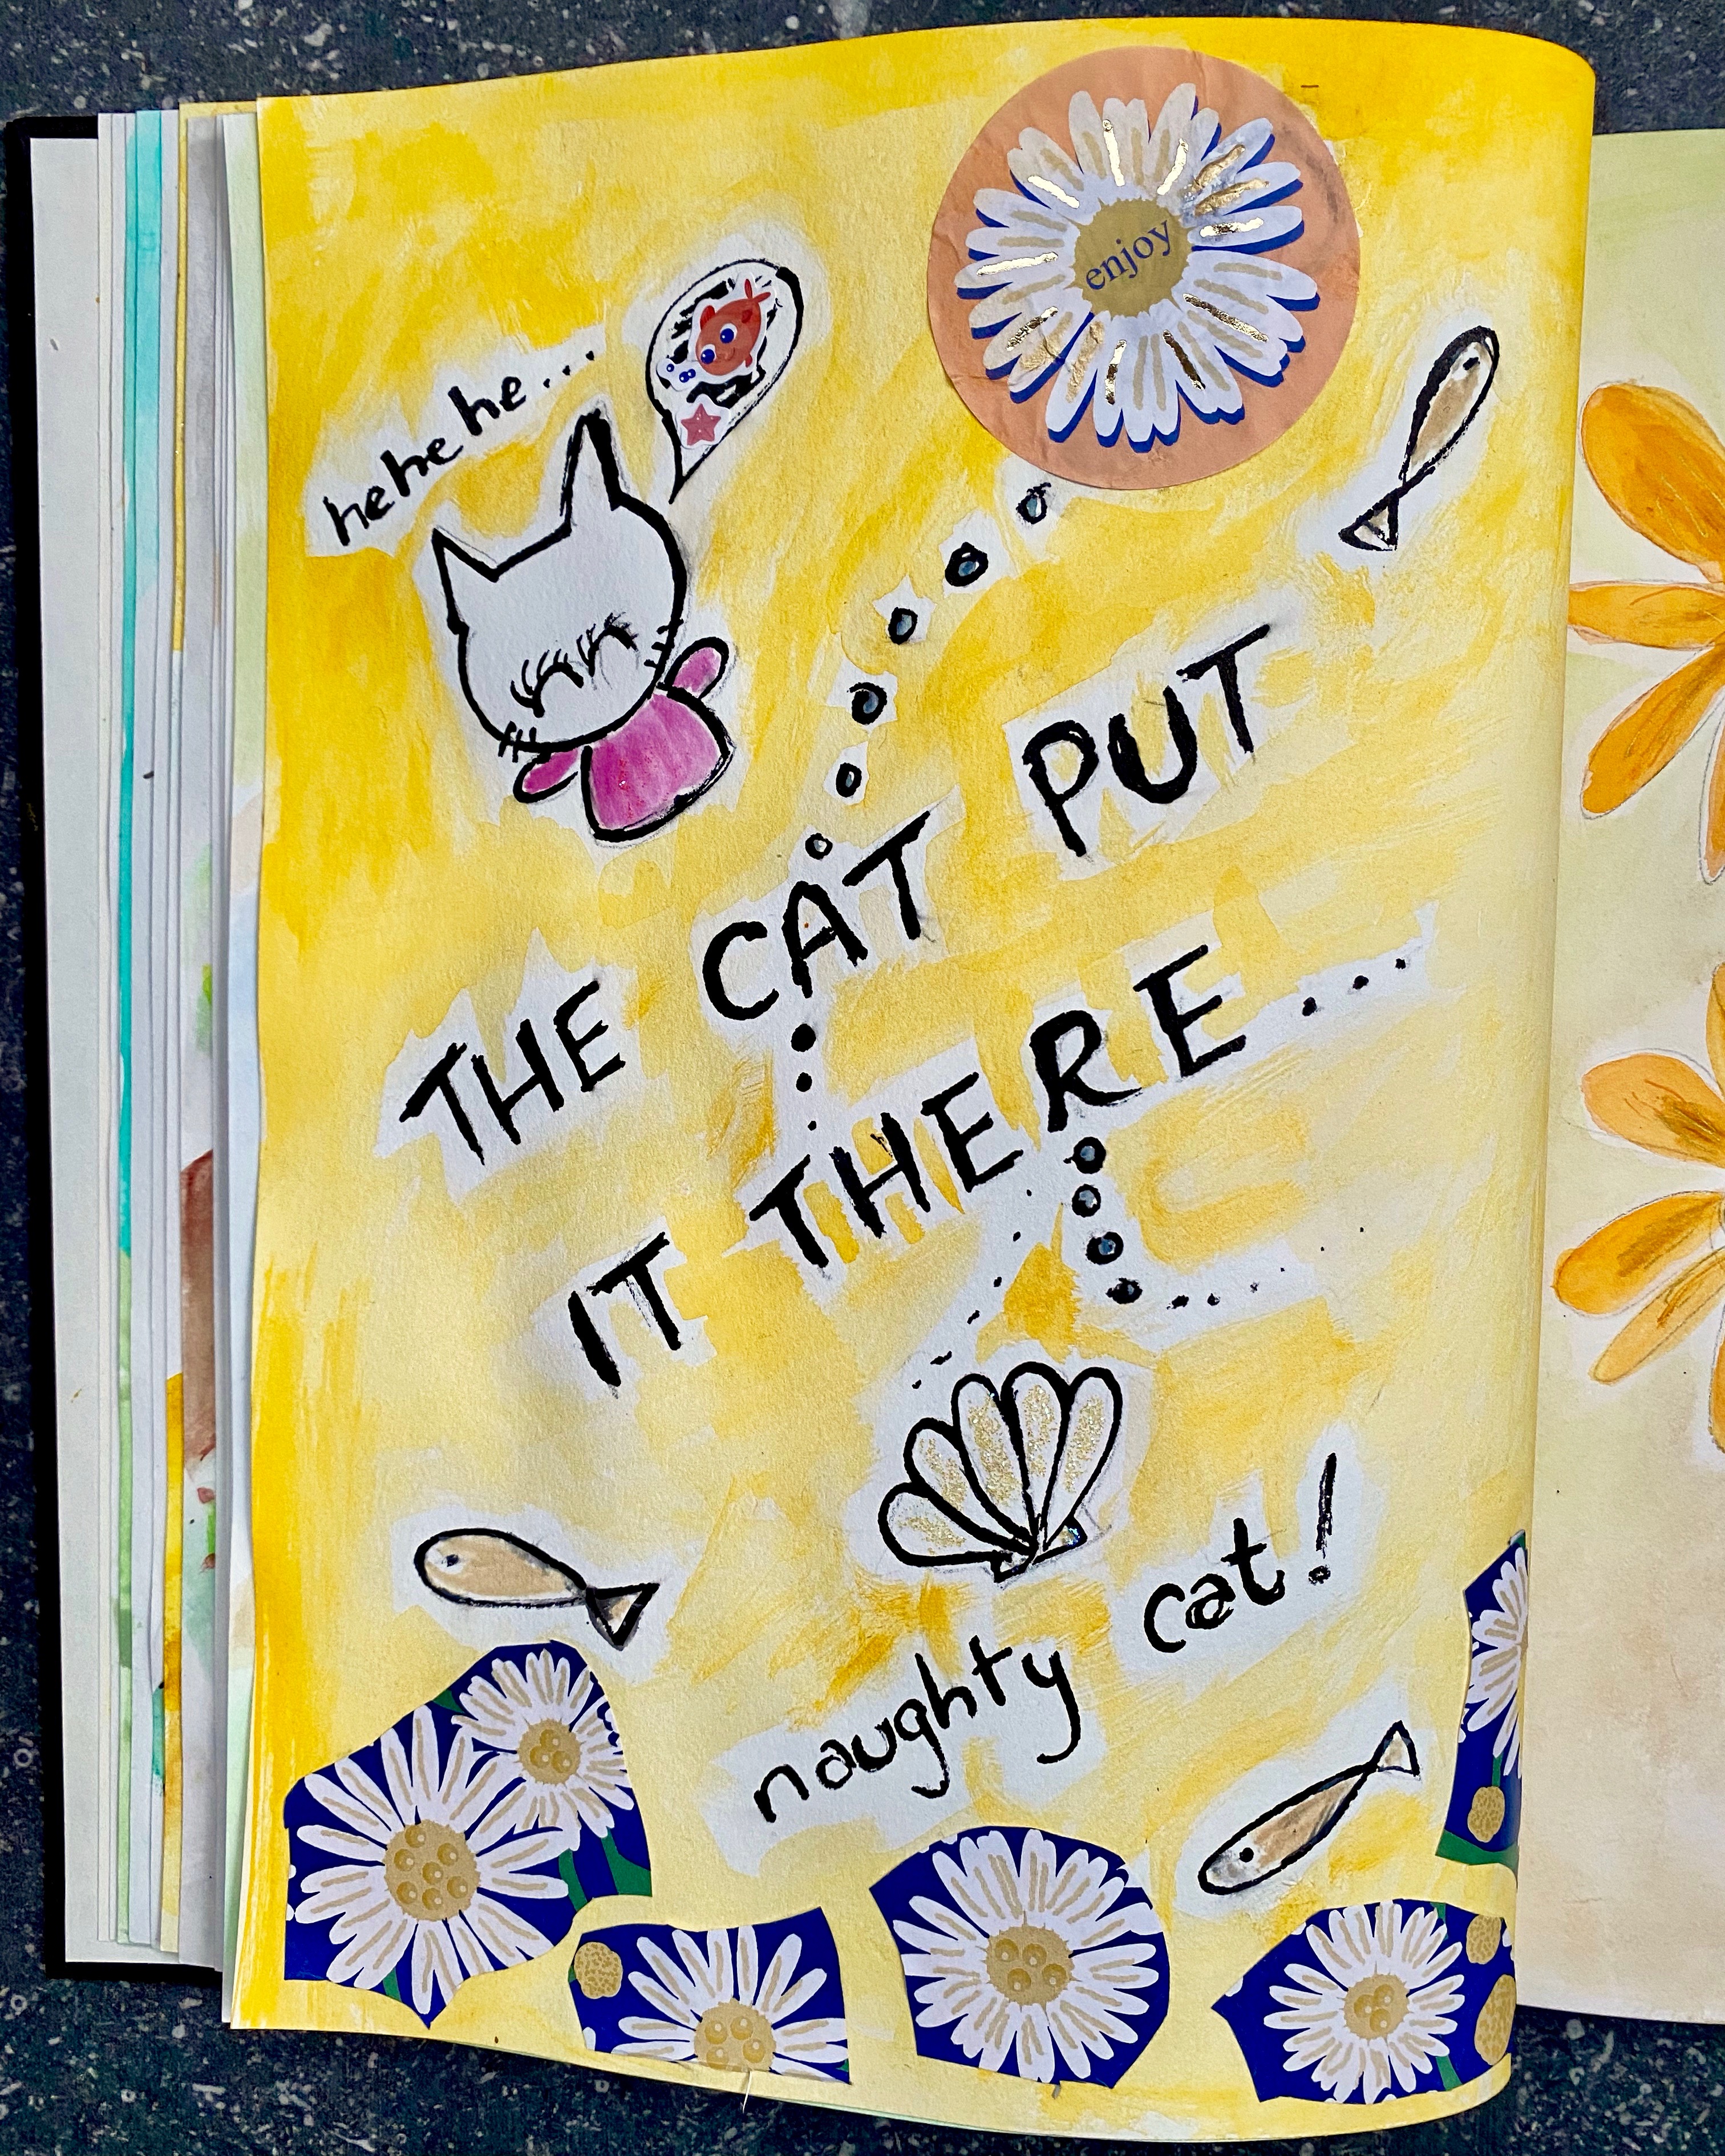 enjoy
hehehe...
THE CAT PUT
IT THERE...
naughty cat!